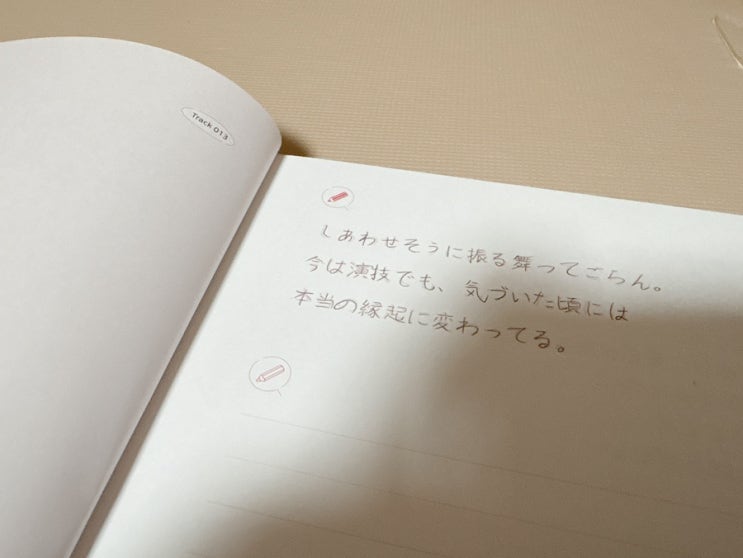 Track 013
しあわせそうに振る舞ってごらん。
今は演技でも、気づいた頃には
本当の縁起に変わってる。